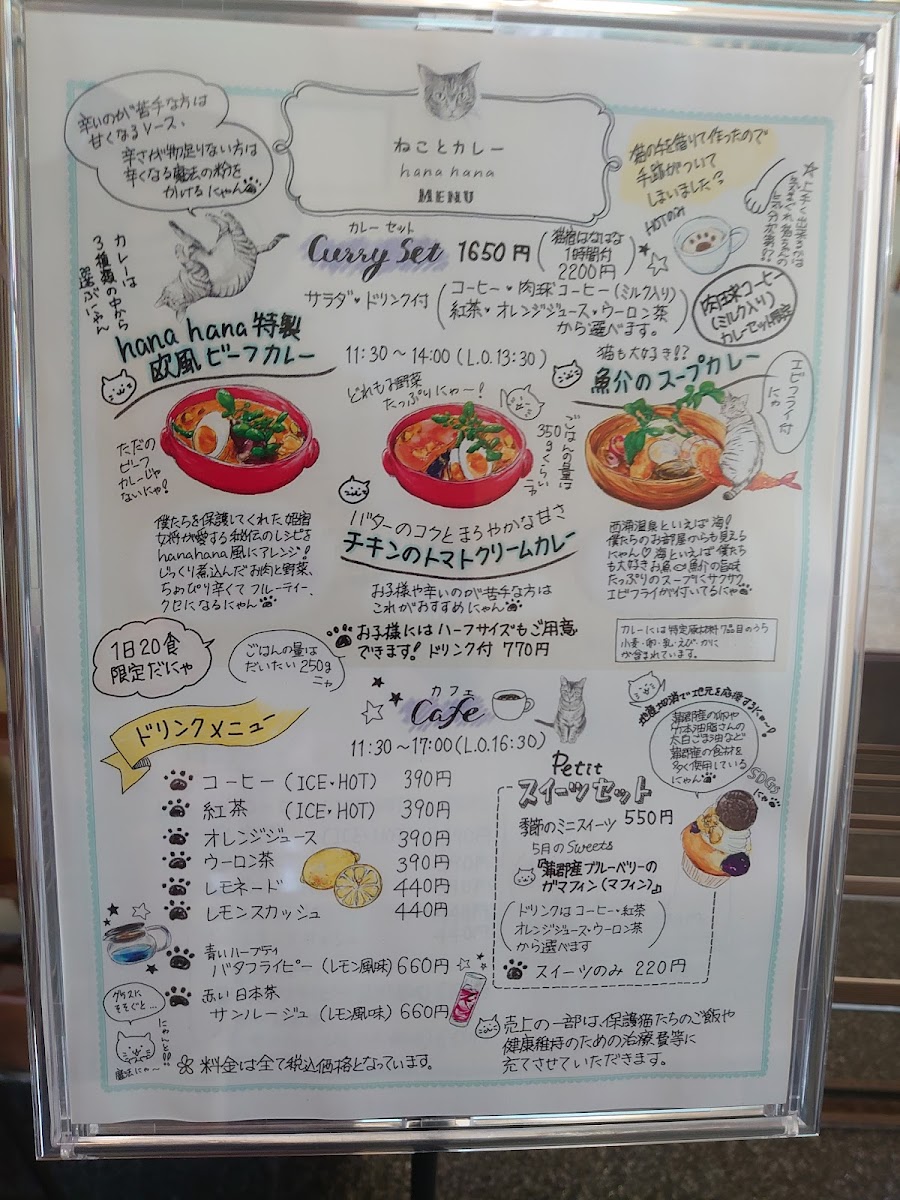 辛いのが苦手な方は
甘くなるソース、
辛さが物足りない方は
辛くなる魔法の粉を
かけるにゃん
ねことカレー
hana hana
MENU
猫の手を借りて作ったので
手跡がついて
しまいました?
HOTのみ
カレーは
3種類の中から
選ぶにゃん
カレーセット
Curry Set 1650円
猫宿はなはな
1時間付
2200円
サラダ・ドリンク付
コーヒー・肉球コーヒー(ミルク入り)
紅茶・オレンジジュース・ウーロン茶
から選べます。
肉球コーヒー
(ミルク入り)
カレーセット限定
hana hana 特製
欧風ビーフカレー
11:30~14:00(L.O.13:30)
どれもお野菜
たっぷりにゃー!
猫も大好き!?
魚介のスープカレー
エビフライ付
にゃ
ただの
ビーフ
カレーじゃ
ないにゃ!
ごはんの量は
350gくらい
ニャ
バターのコクとまろやかな甘さ
チキンのトマトクリームカレー
僕たちを保護してくれた姫宿
女将が愛する秘伝のレシピを
hanahana風にアレンジ!
じっくり煮込んだお肉と野菜、
ちょっぴり辛くてフルーティー、
クセになるにゃん
お子様や辛いのが苦手な方は
これがおすすめにゃん
西浦温泉といえば海!
僕たちのお部屋からも見える
にゃん♡海といえば僕たち
も大好きお魚 魚介の旨味
たっぷりのスープにサクサク
エビフライが付いてるにゃ
お子様にはハーフサイズもご用意
できます! ドリンク付 770円
カレーには特定原材料7品目のうち
小麦・卵・乳・えび・かに
が含まれています。
1日20食
限定だにゃ
ごはんの量は
だいたい250g
ニャ
カフェ
Cafe
11:30~17:00(L.O.16:30)
地産地消で地元を応援するにゃ~!
蒲郡産の卵や
竹本油脂さんの
太白ごま油など
蒲郡産の食材を
多く使用している
にゃん
SDGs
にゃ
ドリンクメニュー
コーヒー (ICE・HOT) 390円
紅茶 (ICE・HOT) 390円
オレンジジュース 390円
ウーロン茶 390円
レモネード 440円
レモンスカッシュ 440円
青いハーブティ
バタフライピー (レモン風味) 660円
赤い日本茶
サンルージュ (レモン風味) 660円
グラスに
そそぐと…
にゃんと!!
魔法にゃ~
Petit
スイーツセット
季節のミニスイーツ 550円
5月のSweets
『蒲郡産ブルーベリーの
ガマフィン(マフィン)』
ドリンクはコーヒー・紅茶
オレンジジュース・ウーロン茶
から選べます
スイーツのみ 220円
※料金は全て税込価格となっています。
売上の一部は、保護猫たちのご飯や
健康維持のための治療費等に
充てさせていただきます。